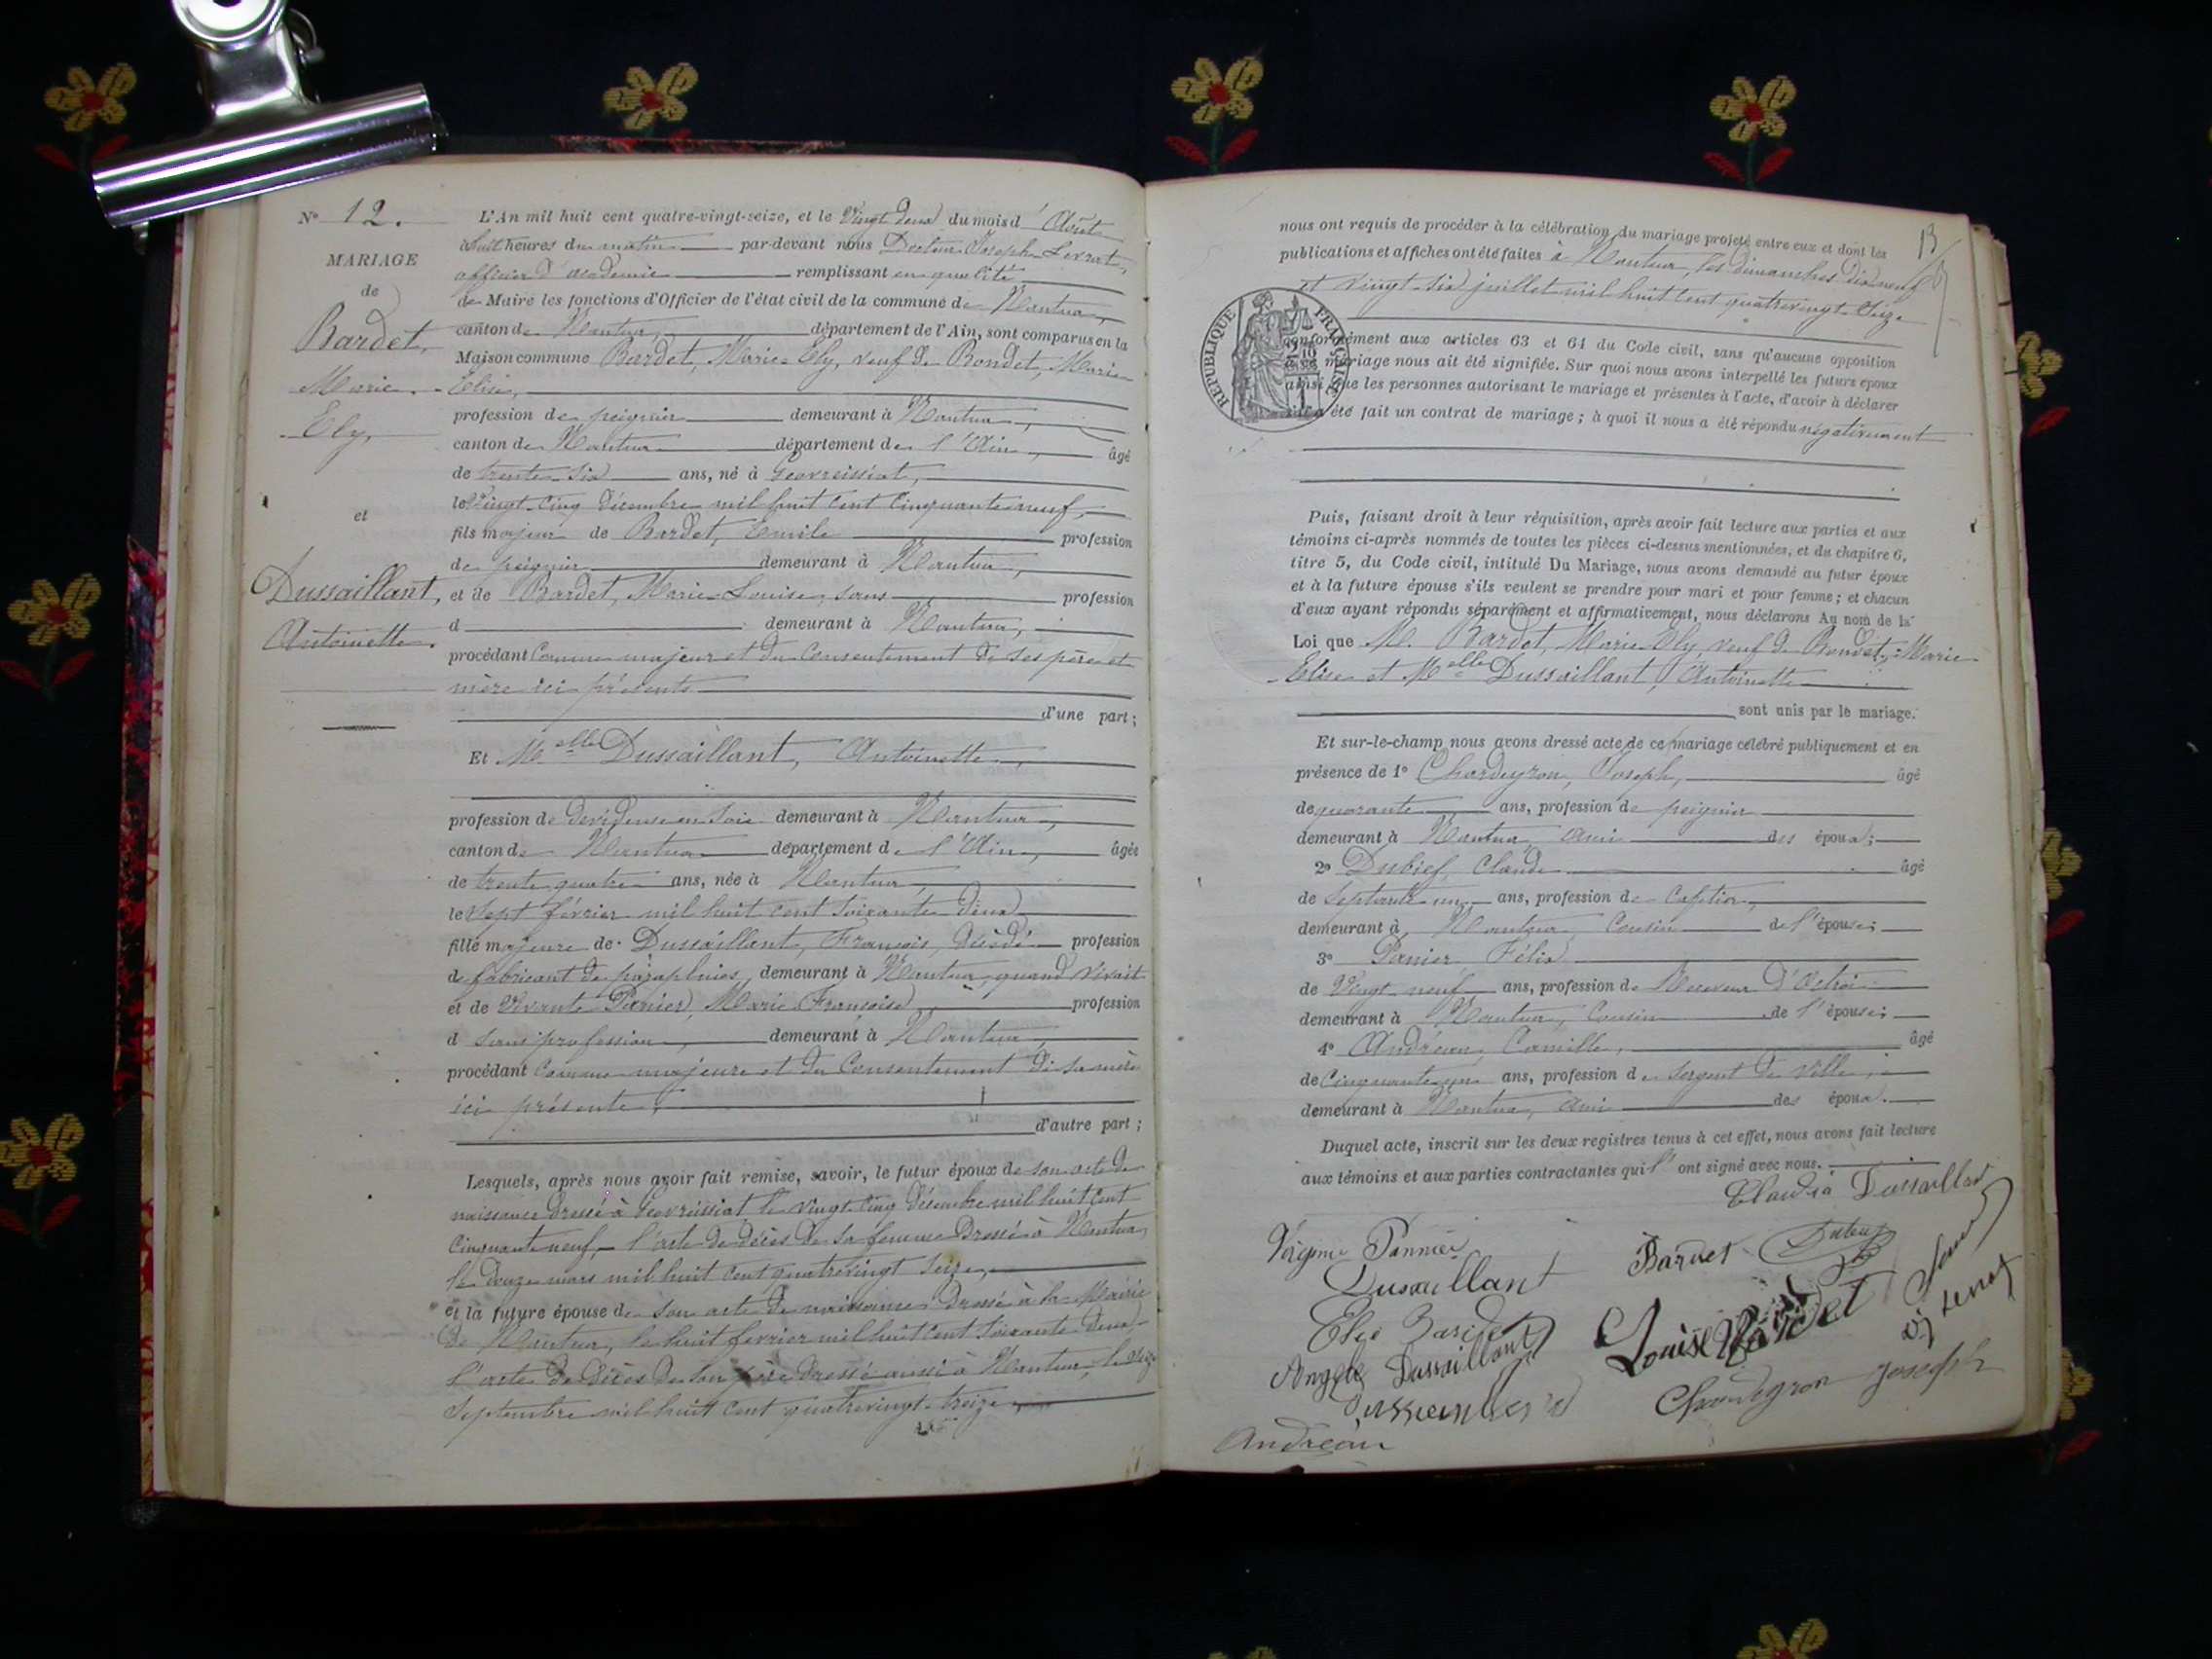 N° 12.
MARIAGE
de
Bardet,
Marie-
Ely,
et
Dussaillant,
Antoinette.
L'An mil huit cent quatre-vingt-seize, et le Vingt deux du mois d'Août
à huit heures du matin par-devant nous Docteur Joseph Levrat,
officier d'académie remplissant en qualité
de Maire les fonctions d'Officier de l'état civil de la commune de Nantua,
canton de Nantua, département de l'Ain, sont comparus en la
Maison commune Bardet, Marie-Ely, veuf de Bondet, Marie
Elise,
profession de peignier demeurant à Nantua,
canton de Nantua département de l'Ain, âgé
de trente-six ans, né à Géovreissiat,
le Vingt-cinq Décembre mil huit cent cinquante neuf,
fils majeur de Bardet, Emile profession
de peignier demeurant à Nantua,
et de Bardet, Marie-Louise, sans profession
d demeurant à Nantua,
procédant comme majeur et du consentement de ses père et
mère ici présents
d'une part;
Et Melle Dussaillant, Antoinette,
profession de dévideuse en soie demeurant à Nantua,
canton de Nantua département de l'Ain, âgée
de trente quatre ans, née à Nantua,
le sept février mil huit cent soixante deux
fille majeure de Dussaillant, François, décédé profession
de fabricant de parapluies, demeurant à Nantua, quand vivait
et de vivante Panier, Marie Françoise profession
d sans profession, demeurant à Nantua,
procédant comme majeure et du consentement de sa mère
ici présente,
d'autre part;
Lesquels, après nous avoir fait remise, savoir, le futur époux de son acte de
naissance dressé à Géovreissiat le vingt cinq décembre mil huit cent
cinquante neuf, l'acte de décès de sa femme dressé à Nantua,
le douze mars mil huit cent quatrevingt seize,
et la future épouse de son acte de naissance dressé à la Mairie
de Nantua, le huit février mil huit cent soixante deux
l'acte de décès de son père dressé aussi à Nantua, le
septembre mil huit cent quatrevingt-treize,
13
nous ont requis de procéder à la célébration du mariage projeté entre eux et dont les
publications et affiches ont été faites à Nantua, les dimanches dix neuf
et vingt-six juillet mil huit cent quatrevingt-seize
REPUBLIQUE FRANÇAISE
conformément aux articles 63 et 64 du Code civil, sans qu'aucune opposition
mariage nous ait été signifiée. Sur quoi nous avons interpellé les futurs époux
ainsi que les personnes autorisant le mariage et présentes à l'acte, d'avoir à déclarer
s'il a été fait un contrat de mariage; à quoi il nous a été répondu négativement
Puis, faisant droit à leur réquisition, après avoir fait lecture aux parties et aux
témoins ci-après nommés de toutes les pièces ci-dessus mentionnées, et du chapitre 6,
titre 5, du Code civil, intitulé Du Mariage, nous avons demandé au futur époux
et à la future épouse s'ils veulent se prendre pour mari et pour femme; et chacun
d'eux ayant répondu séparément et affirmativement, nous déclarons Au nom de la
Loi que M. Bardet, Marie Ely, veuf de Bondet, Marie
Elise et Melle Dussaillant, Antoinette
sont unis par le mariage.
Et sur-le-champ nous avons dressé acte de ce mariage célébré publiquement et en
présence de 1° Chardeyron, Joseph, âgé
de quarante ans, profession de peignier
demeurant à Nantua, ami des époux;
2° Dubief, Claude âgé
de septante-un ans, profession de cafetier,
demeurant à Nantua, Cousin de l'épouse;
3° Panier Félix
de Vingt-neuf ans, profession de Receveur d'Octroi
demeurant à Nantua, Cousin de l'épouse;
4° Andréan, Camille, âgé
de cinquante-un ans, profession de sergent de ville,
demeurant à Nantua, ami des époux.
Duquel acte, inscrit sur les deux registres tenus à cet effet, nous avons fait lecture
aux témoins et aux parties contractantes qui l'ont signé avec nous.
Claudia Dussaillant
Pannier
Dusaillant
Bardet
Angèle Dussaillant
Louise Bardet
Dr Levrat
Chardeyron Joseph
Andréan